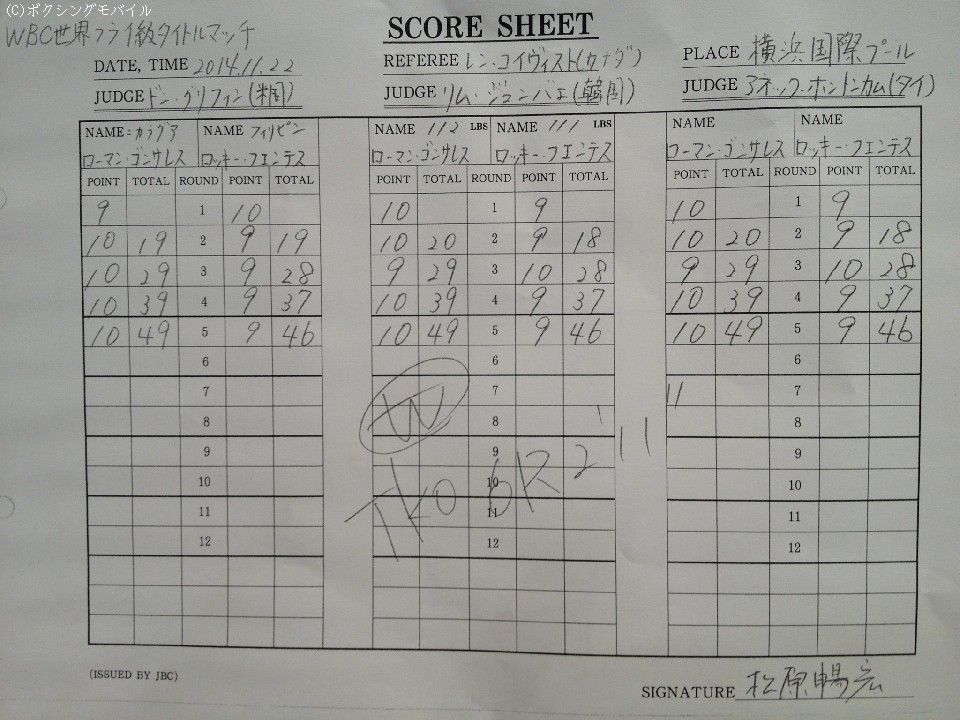 (C)ボクシングモバイル
WBC世界フライ級タイトルマッチ
SCORE SHEET
DATE, TIME 2014.11.22 REFEREE レン・コイヴィスト(カナダ) PLACE 横浜国際プール
JUDGE ドン・グリフィン(米国) JUDGE リム・ジュンバエ(韓国) JUDGE アネック・ホントンカム(タイ)
NAME=カラグア NAME フィリピン NAME 112 LBS NAME 111 LBS NAME NAME
ローマン・ゴンサレス ロッキー・フエンテス ローマン・ゴンサレス ロッキー・フエンテス ローマン・ゴンサレス ロッキー・フエンテス
POINT TOTAL ROUND POINT TOTAL POINT TOTAL ROUND POINT TOTAL POINT TOTAL ROUND POINT TOTAL
9 1 10 10 1 9 10 1 9
10 19 2 9 19 10 20 2 9 18 10 20 2 9 18
10 29 3 9 28 9 29 3 10 28 9 29 3 10 28
10 39 4 9 37 10 39 4 9 37 10 39 4 9 37
10 49 5 9 46 10 49 5 9 46 10 49 5 9 46
6 6 6
7 7 7
8 W 8 8
9 9 9
10 10 10
TKO 6R 2'11"
11 11 11
12 12 12
(ISSUED BY JBC)
SIGNATURE 松原暢宏